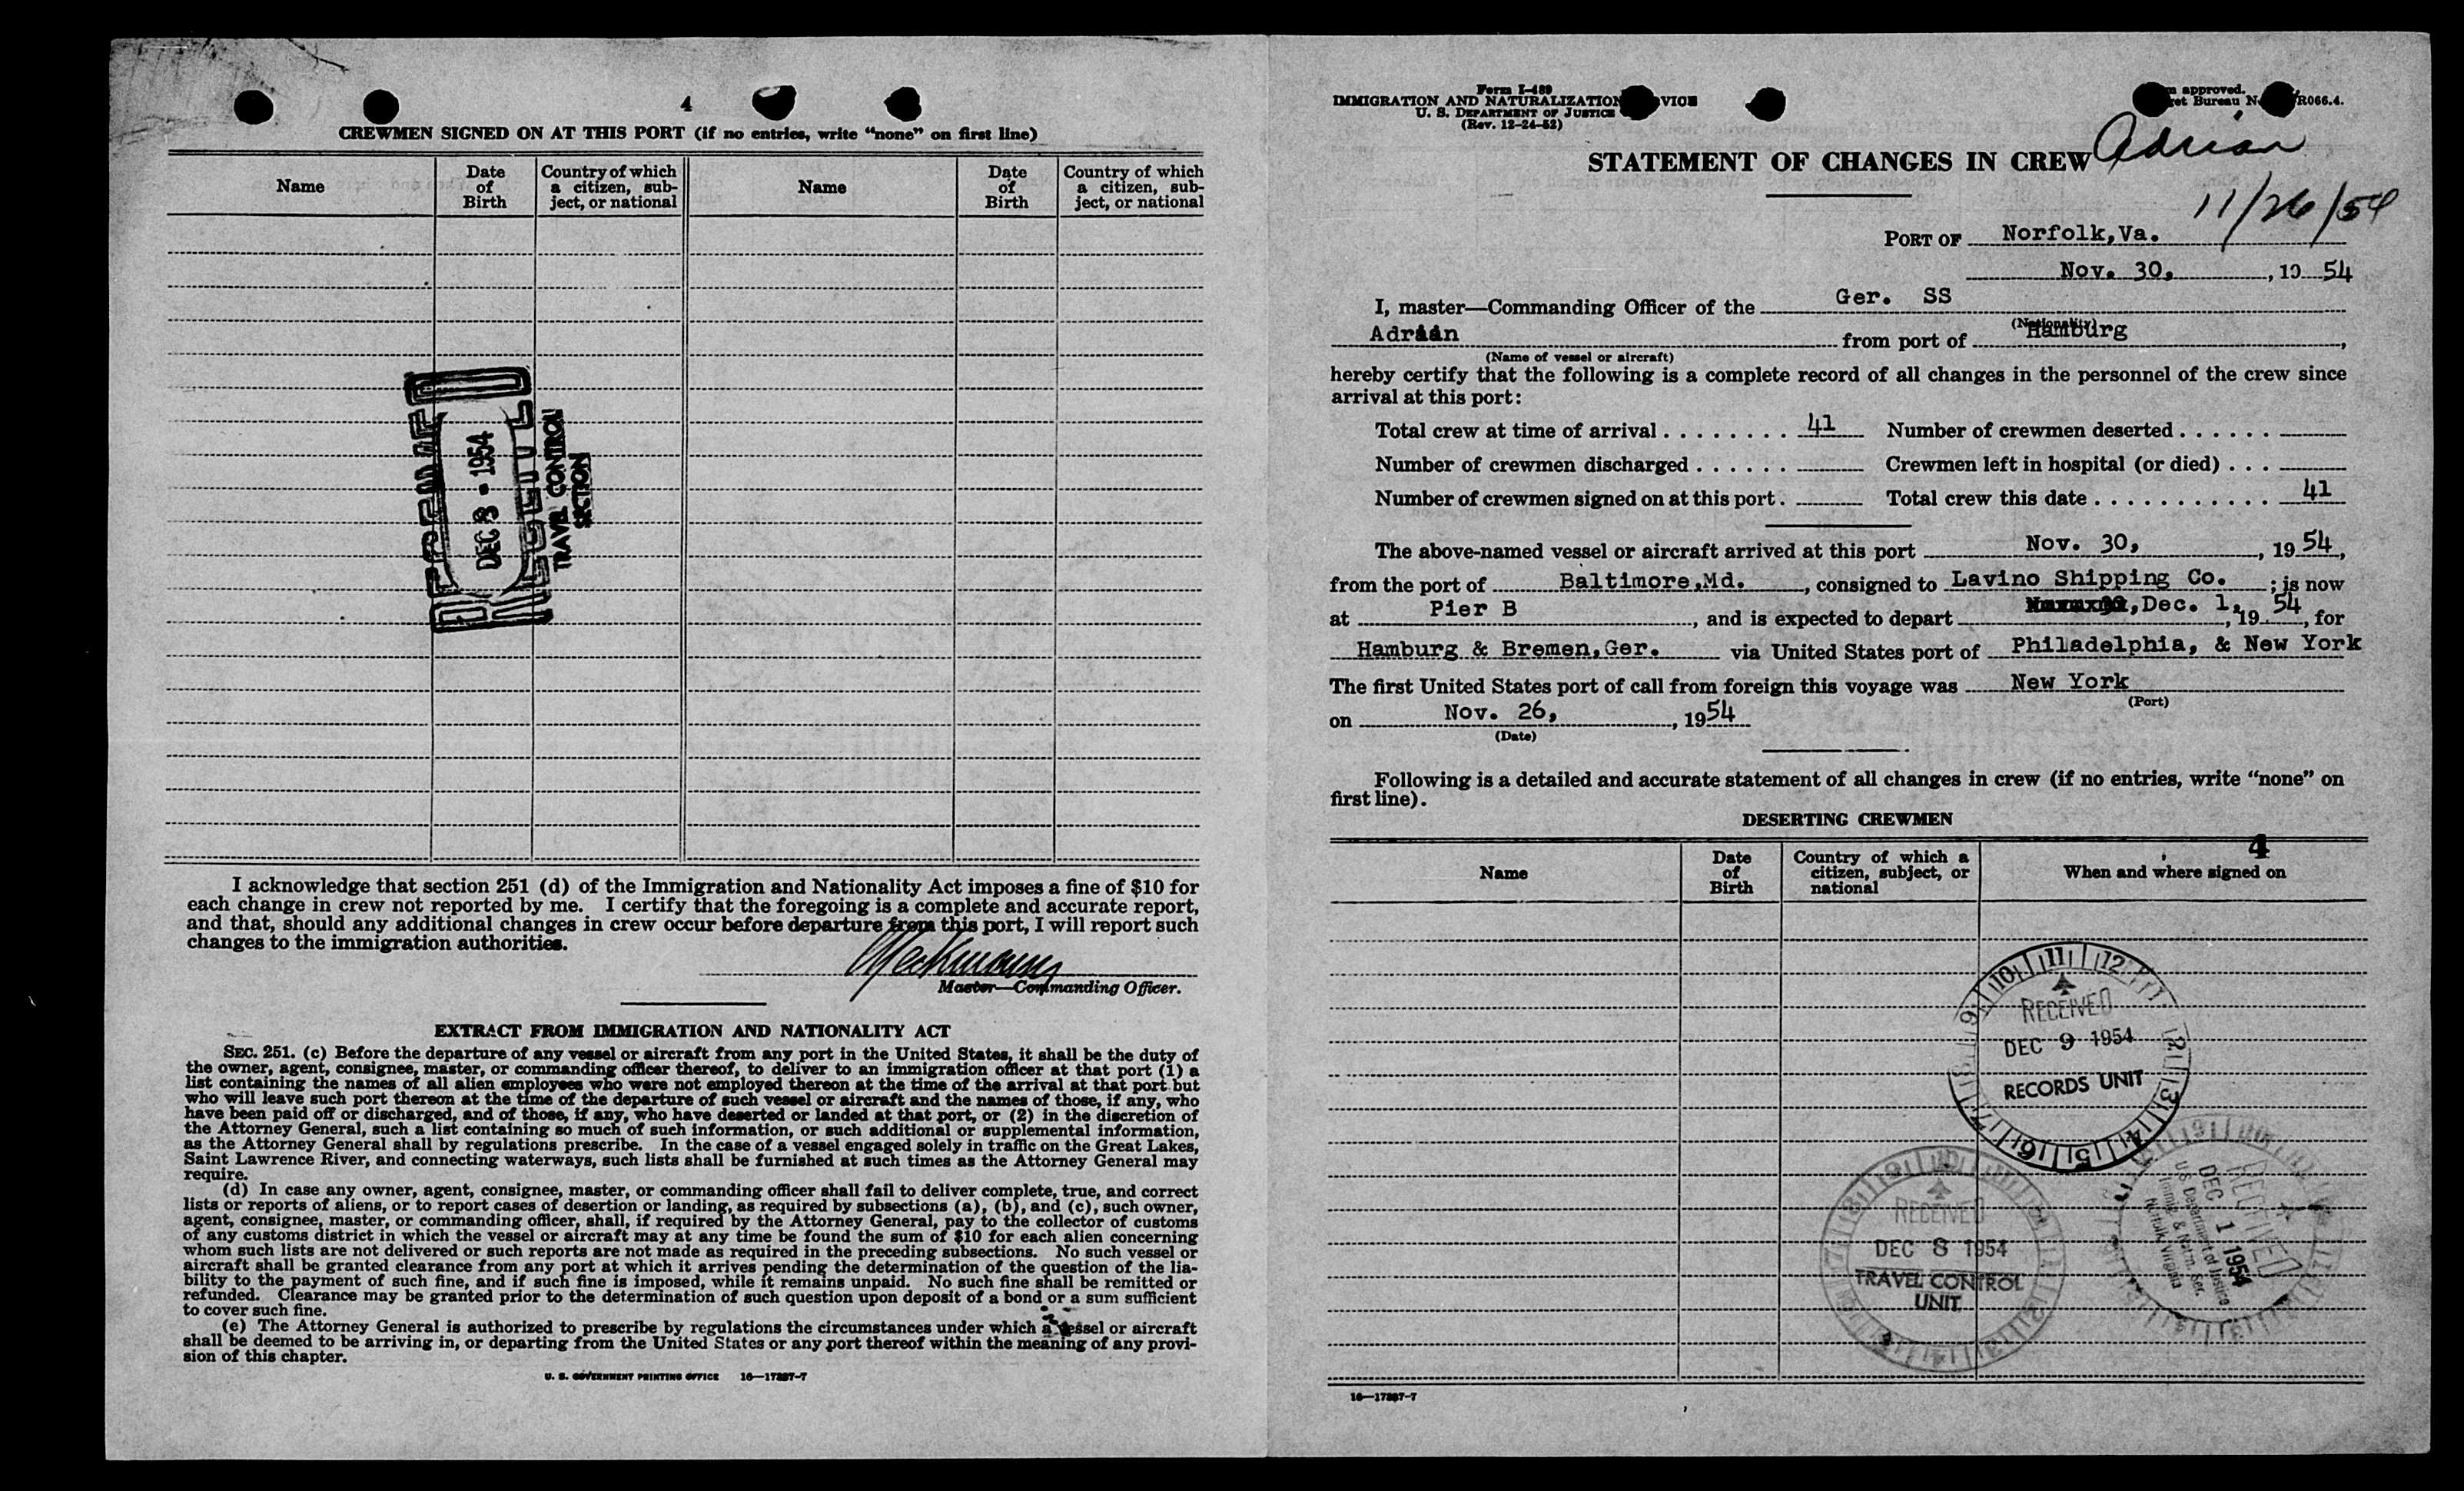 4
CREWMEN SIGNED ON AT THIS PORT (if no entries, write “none” on first line)
Name
Date of Birth
Country of which a citizen, subject, or national
Name
Date of Birth
Country of which a citizen, subject, or national
DEC 8 - 1954
TRAVEL CONTROL
SECTION
I acknowledge that section 251 (d) of the Immigration and Nationality Act imposes a fine of $10 for
each change in crew not reported by me. I certify that the foregoing is a complete and accurate report,
and that, should any additional changes in crew occur before departure from this port, I will report such
changes to the immigration authorities.
Master—Commanding Officer.
EXTRACT FROM IMMIGRATION AND NATIONALITY ACT
SEC. 251. (c) Before the departure of any vessel or aircraft from any port in the United States, it shall be the duty of
the owner, agent, consignee, master, or commanding officer thereof, to deliver to an immigration officer at that port (1) a
list containing the names of all alien employees who were not employed thereon at the time of the arrival at that port but
who will leave such port thereon at the time of the departure of such vessel or aircraft and the names of those, if any, who
have been paid off or discharged, and of those, if any, who have deserted or landed at that port, or (2) in the discretion of
the Attorney General, such a list containing so much of such information, or such additional or supplemental information,
as the Attorney General shall by regulations prescribe. In the case of a vessel engaged solely in traffic on the Great Lakes,
Saint Lawrence River, and connecting waterways, such lists shall be furnished at such times as the Attorney General may
require.
(d) In case any owner, agent, consignee, master, or commanding officer shall fail to deliver complete, true, and correct
lists or reports of aliens, or to report cases of desertion or landing, as required by subsections (a), (b), and (c), such owner,
agent, consignee, master, or commanding officer, shall, if required by the Attorney General, pay to the collector of customs
of any customs district in which the vessel or aircraft may at any time be found the sum of $10 for each alien concerning
whom such lists are not delivered or such reports are not made as required in the preceding subsections. No such vessel or
aircraft shall be granted clearance from any port at which it arrives pending the determination of the question of the lia-
bility to the payment of such fine, and if such fine is imposed, while it remains unpaid. No such fine shall be remitted or
refunded. Clearance may be granted prior to the determination of such question upon deposit of a bond or a sum sufficient
to cover such fine.
(e) The Attorney General is authorized to prescribe by regulations the circumstances under which a vessel or aircraft
shall be deemed to be arriving in, or departing from the United States or any port thereof within the meaning of any provi-
sion of this chapter.
U. S. GOVERNMENT PRINTING OFFICE 16—17887-7
Form I-489
IMMIGRATION AND NATURALIZATION VICE
U. S. DEPARTMENT OF JUSTICE
(Rev. 12-24-52)
approved.
Bureau R066.4.
STATEMENT OF CHANGES IN CREW Adrian
11/26/54
PORT OF Norfolk,Va.
Nov. 30, , 19 54
I, master—Commanding Officer of the Ger. SS
(Nationality)
Adrian from port of Hamburg ,
(Name of vessel or aircraft)
hereby certify that the following is a complete record of all changes in the personnel of the crew since
arrival at this port:
Total crew at time of arrival . . . . . . . . 41 Number of crewmen deserted . . . . . .
Number of crewmen discharged . . . . . . Crewmen left in hospital (or died) . . .
Number of crewmen signed on at this port . Total crew this date . . . . . . . . . . . 41
The above-named vessel or aircraft arrived at this port Nov. 30, , 19 54 ,
from the port of Baltimore,Md. , consigned to Lavino Shipping Co. ; is now
at Pier B , and is expected to depart , Dec. 1, , 19 54 , for
Hamburg & Bremen,Ger. via United States port of Philadelphia, & New York
The first United States port of call from foreign this voyage was New York
(Port)
on Nov. 26, , 19 54
(Date)
Following is a detailed and accurate statement of all changes in crew (if no entries, write “none” on
first line).
DESERTING CREWMEN
4
Name
Date of Birth
Country of which a citizen, subject, or national
When and where signed on
RECEIVED
DEC 9 1954
RECORDS UNIT
RECEIVED
DEC 8 1954
TRAVEL CONTROL
UNIT
RECEIVED
DEC 1 1954
US Department of Justice
Immig. & Natzn. Ser.
Norfolk, Virginia
16—17887-7